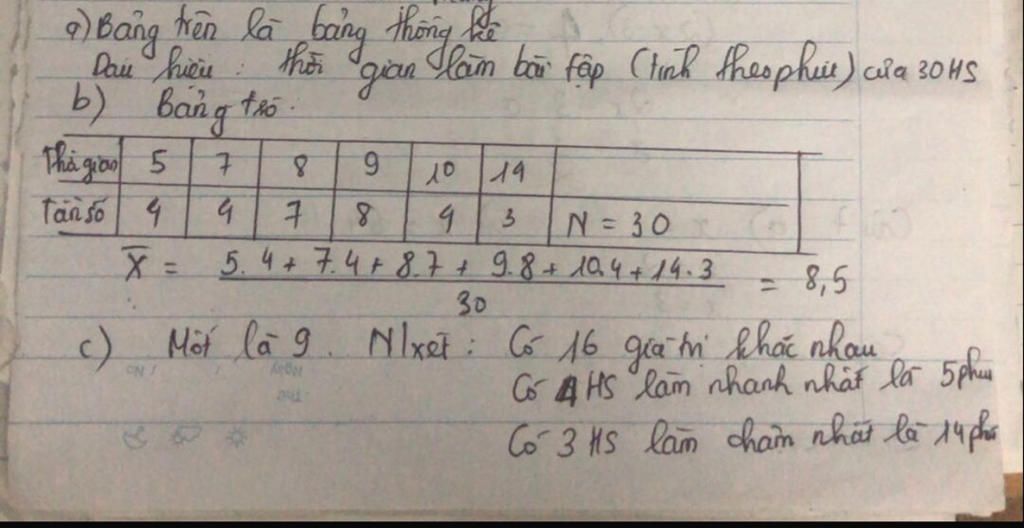 a) Bảng trên là bảng thống kê
Dấu hiệu : thời gian làm bài tập (tính theo phút) của 30 HS
b) Bảng tsố.
Thời gian 5 7 8 9 10 14
Tần số 4 4 7 8 4 3 N = 30
X̄ = 5.4 + 7.4 + 8.7 + 9.8 + 10.4 + 14.3 / 30 = 8,5
c) Mốt là 9. N/xét : Có 16 giá trị khác nhau
Có 4 HS làm nhanh nhất là 5 phút
Có 3 HS làm chậm nhất là 14 phú